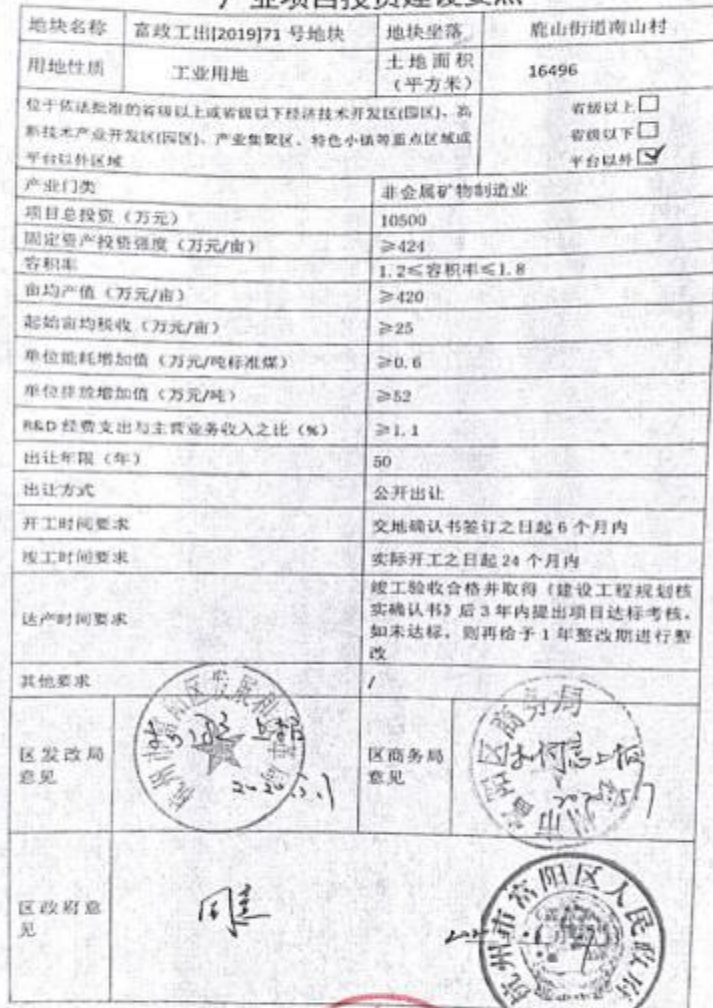 产业项目投资建设要点
地块名称 富政工出[2019]71 号地块 地块坐落 鹿山街道南山村
用地性质 工业用地 土地面积（平方米） 16496
位于依法批准的省级以上或省级以下经济技术开发区(园区)、高
新技术产业开发区(园区)、产业集聚区、特色小镇等重点区域或
平台以外区域
省级以上□
省级以下□
平台以外☑
产业门类 非金属矿物制造业
项目总投资（万元） 10500
固定资产投资强度（万元/亩） ≥424
容积率 1.2≤容积率≤1.8
亩均产值（万元/亩） ≥420
起始亩均税收（万元/亩） ≥25
单位能耗增加值（万元/吨标准煤） ≥0.6
单位排放增加值（万元/吨） ≥52
R&D 经费支出与主营业务收入之比（%） ≥1.1
出让年限（年） 50
出让方式 公开出让
开工时间要求 交地确认书签订之日起 6 个月内
竣工时间要求 实际开工之日起 24 个月内
达产时间要求
竣工验收合格并取得《建设工程规划核
实确认书》后 3 年内提出项目达标考核，
如未达标，则再给予 1 年整改期进行整
改
其他要求 /
区发改局
意见
上报
区商务局
意见
上报
区政府意
见
同意
杭州市富阳区人民政府